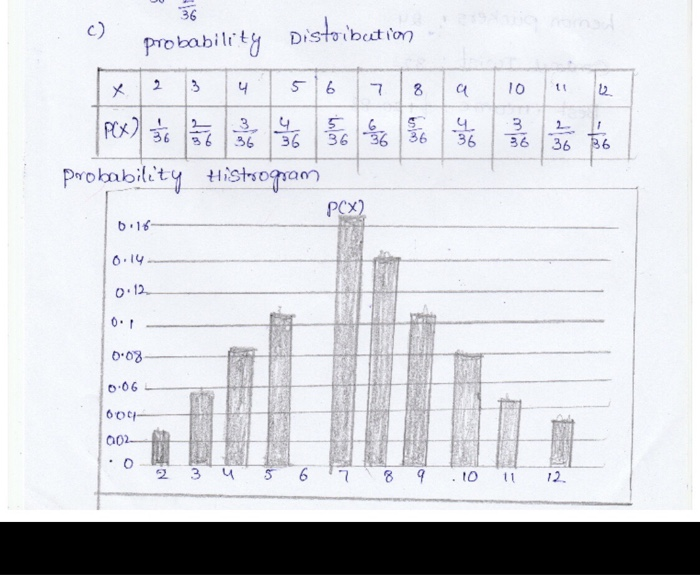 2
36
c) Probability Distribution
X 2 3 4 5 6 7 8 9 10 11 12
P(X) 1/36 2/36 3/36 4/36 5/36 6/36 5/36 4/36 3/36 2/36 1/36
Probability Histrogram
P(X)
0.16
0.14
0.12
0.1
0.08
0.06
0.04
0.02
0
2 3 4 5 6 7 8 9 10 11 12